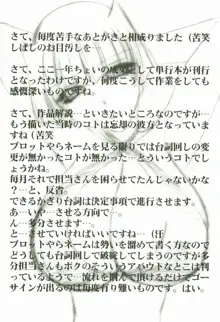 さて、毎度苦手なあとがきと相成りました（苦笑
しばしのお目汚しを…
さて、ここ一年ちょいの成果として単行本が刊行
となったわけですが、何度こうして作業をしても
感慨深いものですね。
さて、作品解説…といきたいところなのですが…
もう描いた当時のコトは忘却の彼方となっていま
すね（苦笑
プロットやらネームを見る限りでは台詞回しの変
更が無かったコトが無かった…というコトでしょ
うかね。
毎月それで担当さんを困らせてたんじゃないかな
？…と、反省。
できるかぎり台詞は決定事項で進行させます。
あ…いや…させる方向で…
ん…多分させます…
と…させていければいいですね…（汗
プロットやらネームは勢いを溜めて書く方なので
どうしても台詞回しで破綻してしまうのですが多
分担当さんもボクのそういうアバウトなとこは承
知の上でいるようで、流れを掴んで頂けるだけでゴー
サインが出るのは毎度有り難いものです。はい。